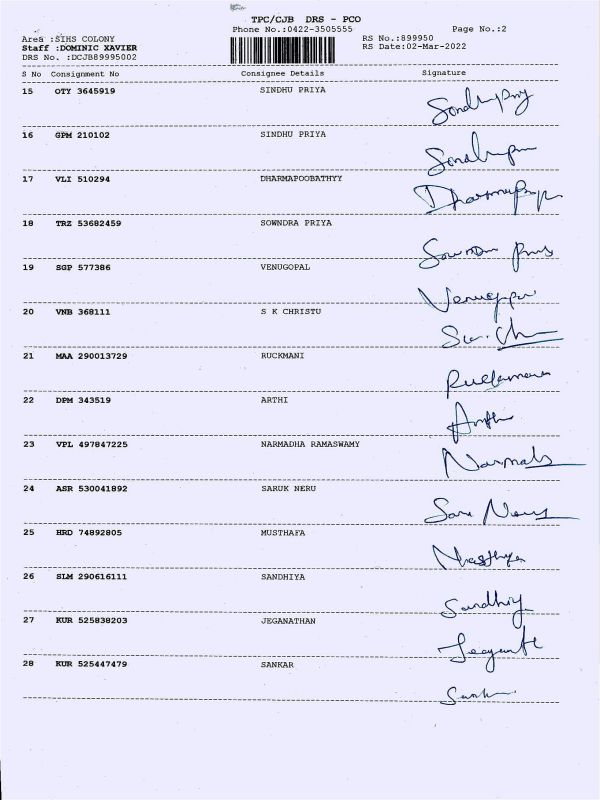 TPC/CJB DRS - PCO
Phone No.:0422-3505555 Page No.:2
Area :SIHS COLONY RS No.:899950
Staff :DOMINIC XAVIER RS Date:02-Mar-2022
DRS No. :DCJB89995002
S No Consignment No Consignee Details Signature
15 OTY 3645919 SINDHU PRIYA
16 GPM 210102 SINDHU PRIYA
17 VLI 510294 DHARMAPOOBATHYY
18 TRZ 53682459 SOWNDRA PRIYA
19 SGP 577386 VENUGOPAL
20 VNB 368111 S K CHRISTU
21 MAA 290013729 RUCKMANI
22 DPM 343519 ARTHI
23 VPL 497847225 NARMADHA RAMASWAMY
24 ASR 530041892 SARUK NERU
25 HRD 74892805 MUSTHAFA
26 SLM 290616111 SANDHIYA
Sandhiy
27 KUR 525838203 JEGANATHAN
28 KUR 525447479 SANKAR